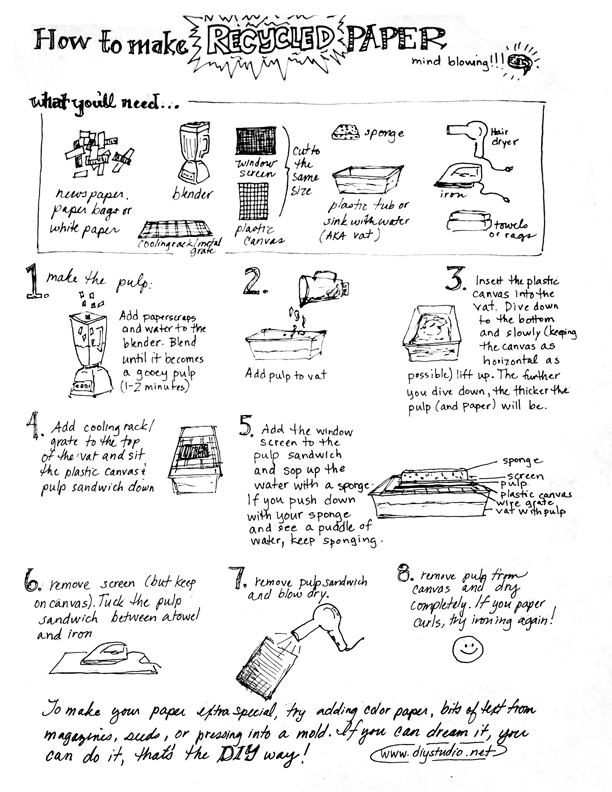 How to make RECYCLED PAPER
mind blowing!!!
what you'll need...
newspaper,
paper bags or
white paper
blender
cooling rack/metal
grate
window
screen
plastic
canvas
cut to
the
same
size
sponge
plastic tub or
sink with water
(AKA vat)
Hair
dryer
iron
towels
or rags
1. make the pulp:
Add paperscraps
and water to the
blender. Blend
until it becomes
a gooey pulp
(1-2 minutes)
2.
Add pulp to vat
3. Insert the plastic
canvas into the
vat. Dive down
to the bottom
and slowly (keeping
the canvas as
horizontal as
possible) lift up. The further
you dive down, the thicker the
pulp (and paper) will be.
4. Add cooling rack/
grate to the top
of the vat and sit
the plastic canvas &
pulp sandwich down
5. Add the window
screen to the
pulp sandwich
and sop up the
water with a sponge.
If you push down
with your sponge
and see a puddle of
water, keep sponging.
sponge
screen
pulp
plastic canvas
wire grate
vat with pulp
6. remove screen (but keep
on canvas). Tuck the pulp
sandwich between a towel
and iron
7. remove pulp sandwich
and blow dry.
8. remove pulp from
canvas and dry
completely. If you paper
curls, try ironing again!
To make your paper extra special, try adding color paper, bits of text from
magazines, seeds, or pressing into a mold. If you can dream it, you
can do it, that's the DIY way!
www.diystudio.net